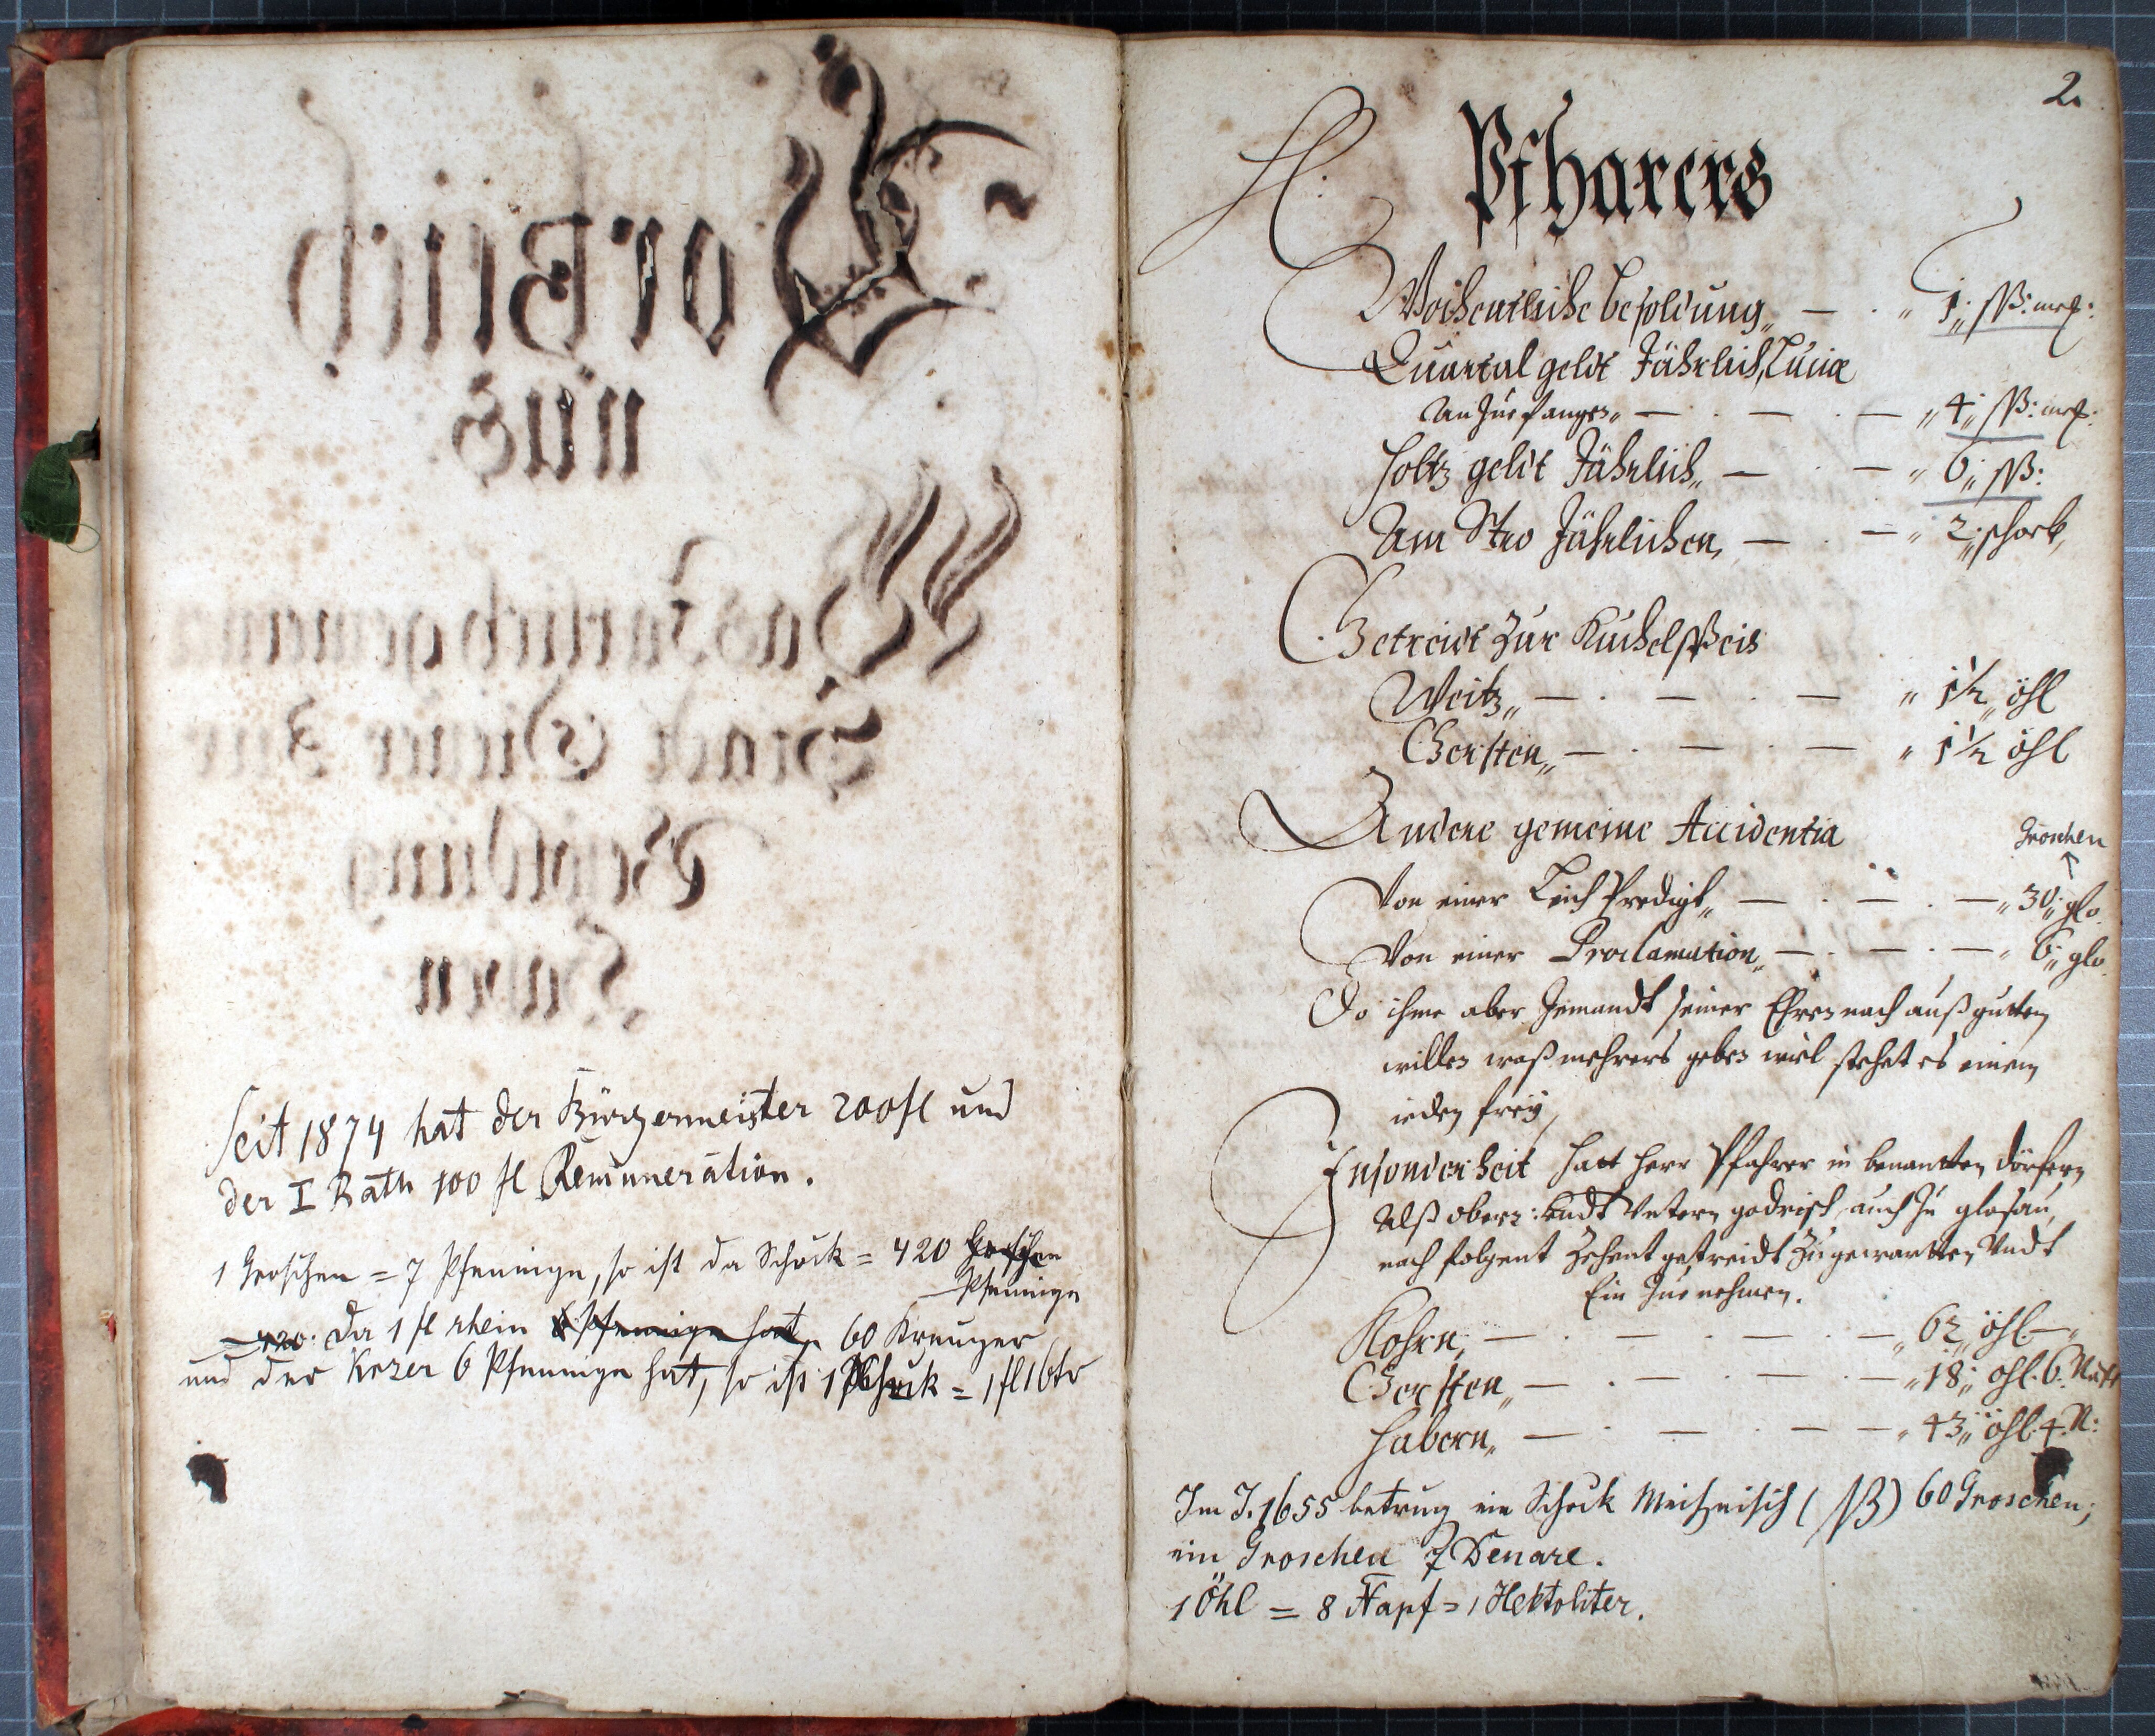 Vor Buch
aus
Was Järlich gemein
Stadt Diener Zur
Besoldung
Haben
Seit 1874 hat der Bürgermeister 200 fl und
der I Rath 100 fl Remuneration.
1 Groschen = 7 Pfennige, so ist da Schock = 420 Groschen
Pfennige
420. Der 1 fl rhein Pfennige hat 60 Kreuzer
und der Krzer 6 Pfennige hat, so ist 1 Schock = 1 fl 16 kr
2.
H. Pfharers
Wochentliche besoldung „ — „ 1 „ ſß: meß:
Quartal geldt Jährlich, Luciæ
An Zue fangen „ — „ 4 „ ſß: meß:
Holtz geldt Jährlich „ — „ 6 „ ſß:
Am Stro Jährlichen, — „ 2 „ schock,
Getreidt Zur Kuchelspeis
Weitz „ — „ 1½ „ öhl
Gersten „ — „ 1½ öhl
Andere gemeine Accidentia
Groschen
Von einer Leich Predigt „ — „ 30 „ glo.
Von einer Proclamation „ — „ 6 „ glo.
Do ihme aber Jemandt seiner Ehren nach auß gutten
willen waß mehrers geben wiel stehet es einem
ieden freÿ,
Insonderheit hatt Herr Pfahrer in benantten dörfern
Alß obern: Undt Untern godrisch, auch Zu glosau,
nach folgent Zehent getreidt Zugewartten Undt
Ein Zue nehmen.
Kohrn, — „ 62 „ öhl — „
Gersten „ — „ 18 „ öhl. 6.
Habern „ — „ 43 „ öhl. 4. N:
Im J. 1655 betrug ein Schock Meißnisch (ſß) 60 Groschen;
ein Groschen 7 Denare.
1 Öhl = 8 Napf = 1 Hektoliter.